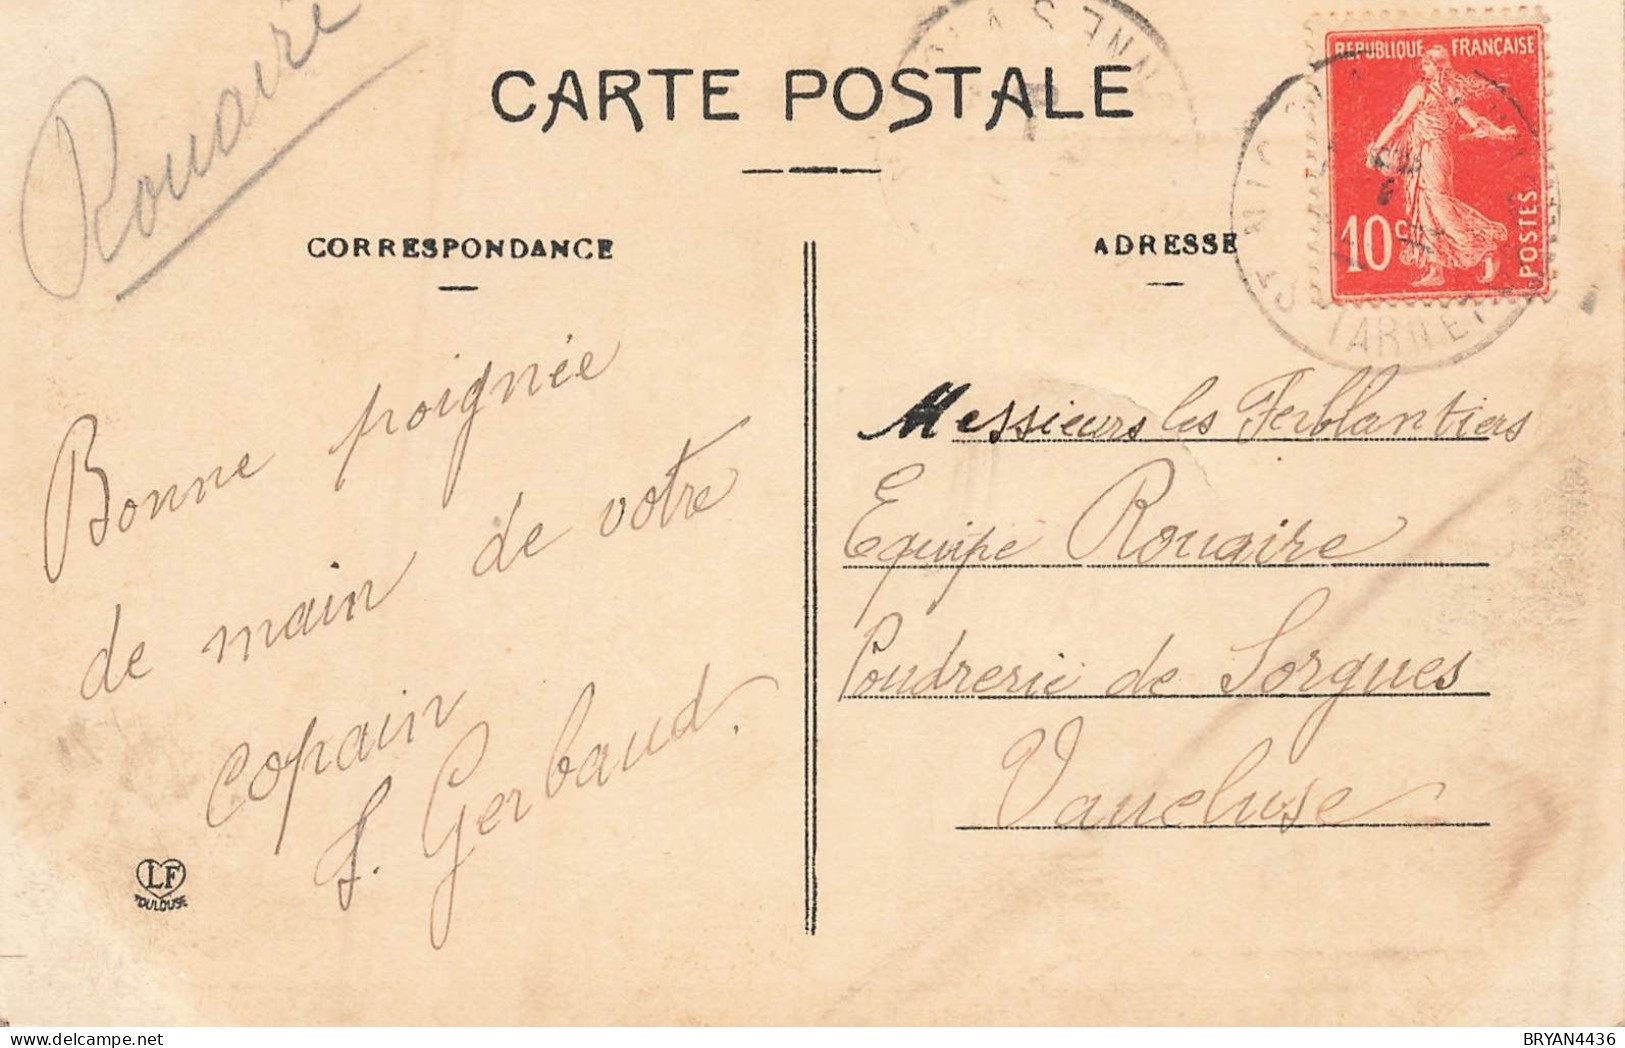 Rouaire
CARTE POSTALE
REPUBLIQUE FRANÇAISE
10c
POSTES
TARN ET
CORRESPONDANCE
ADRESSE
Bonne poignée
de main de votre
copain
J. Gerbaud.
Messieurs les Ferblantiers
Equipe Rouaire
Poudrerie de Sorgues
Vaucluse
LF
TOULOUSE
BRYAN4436